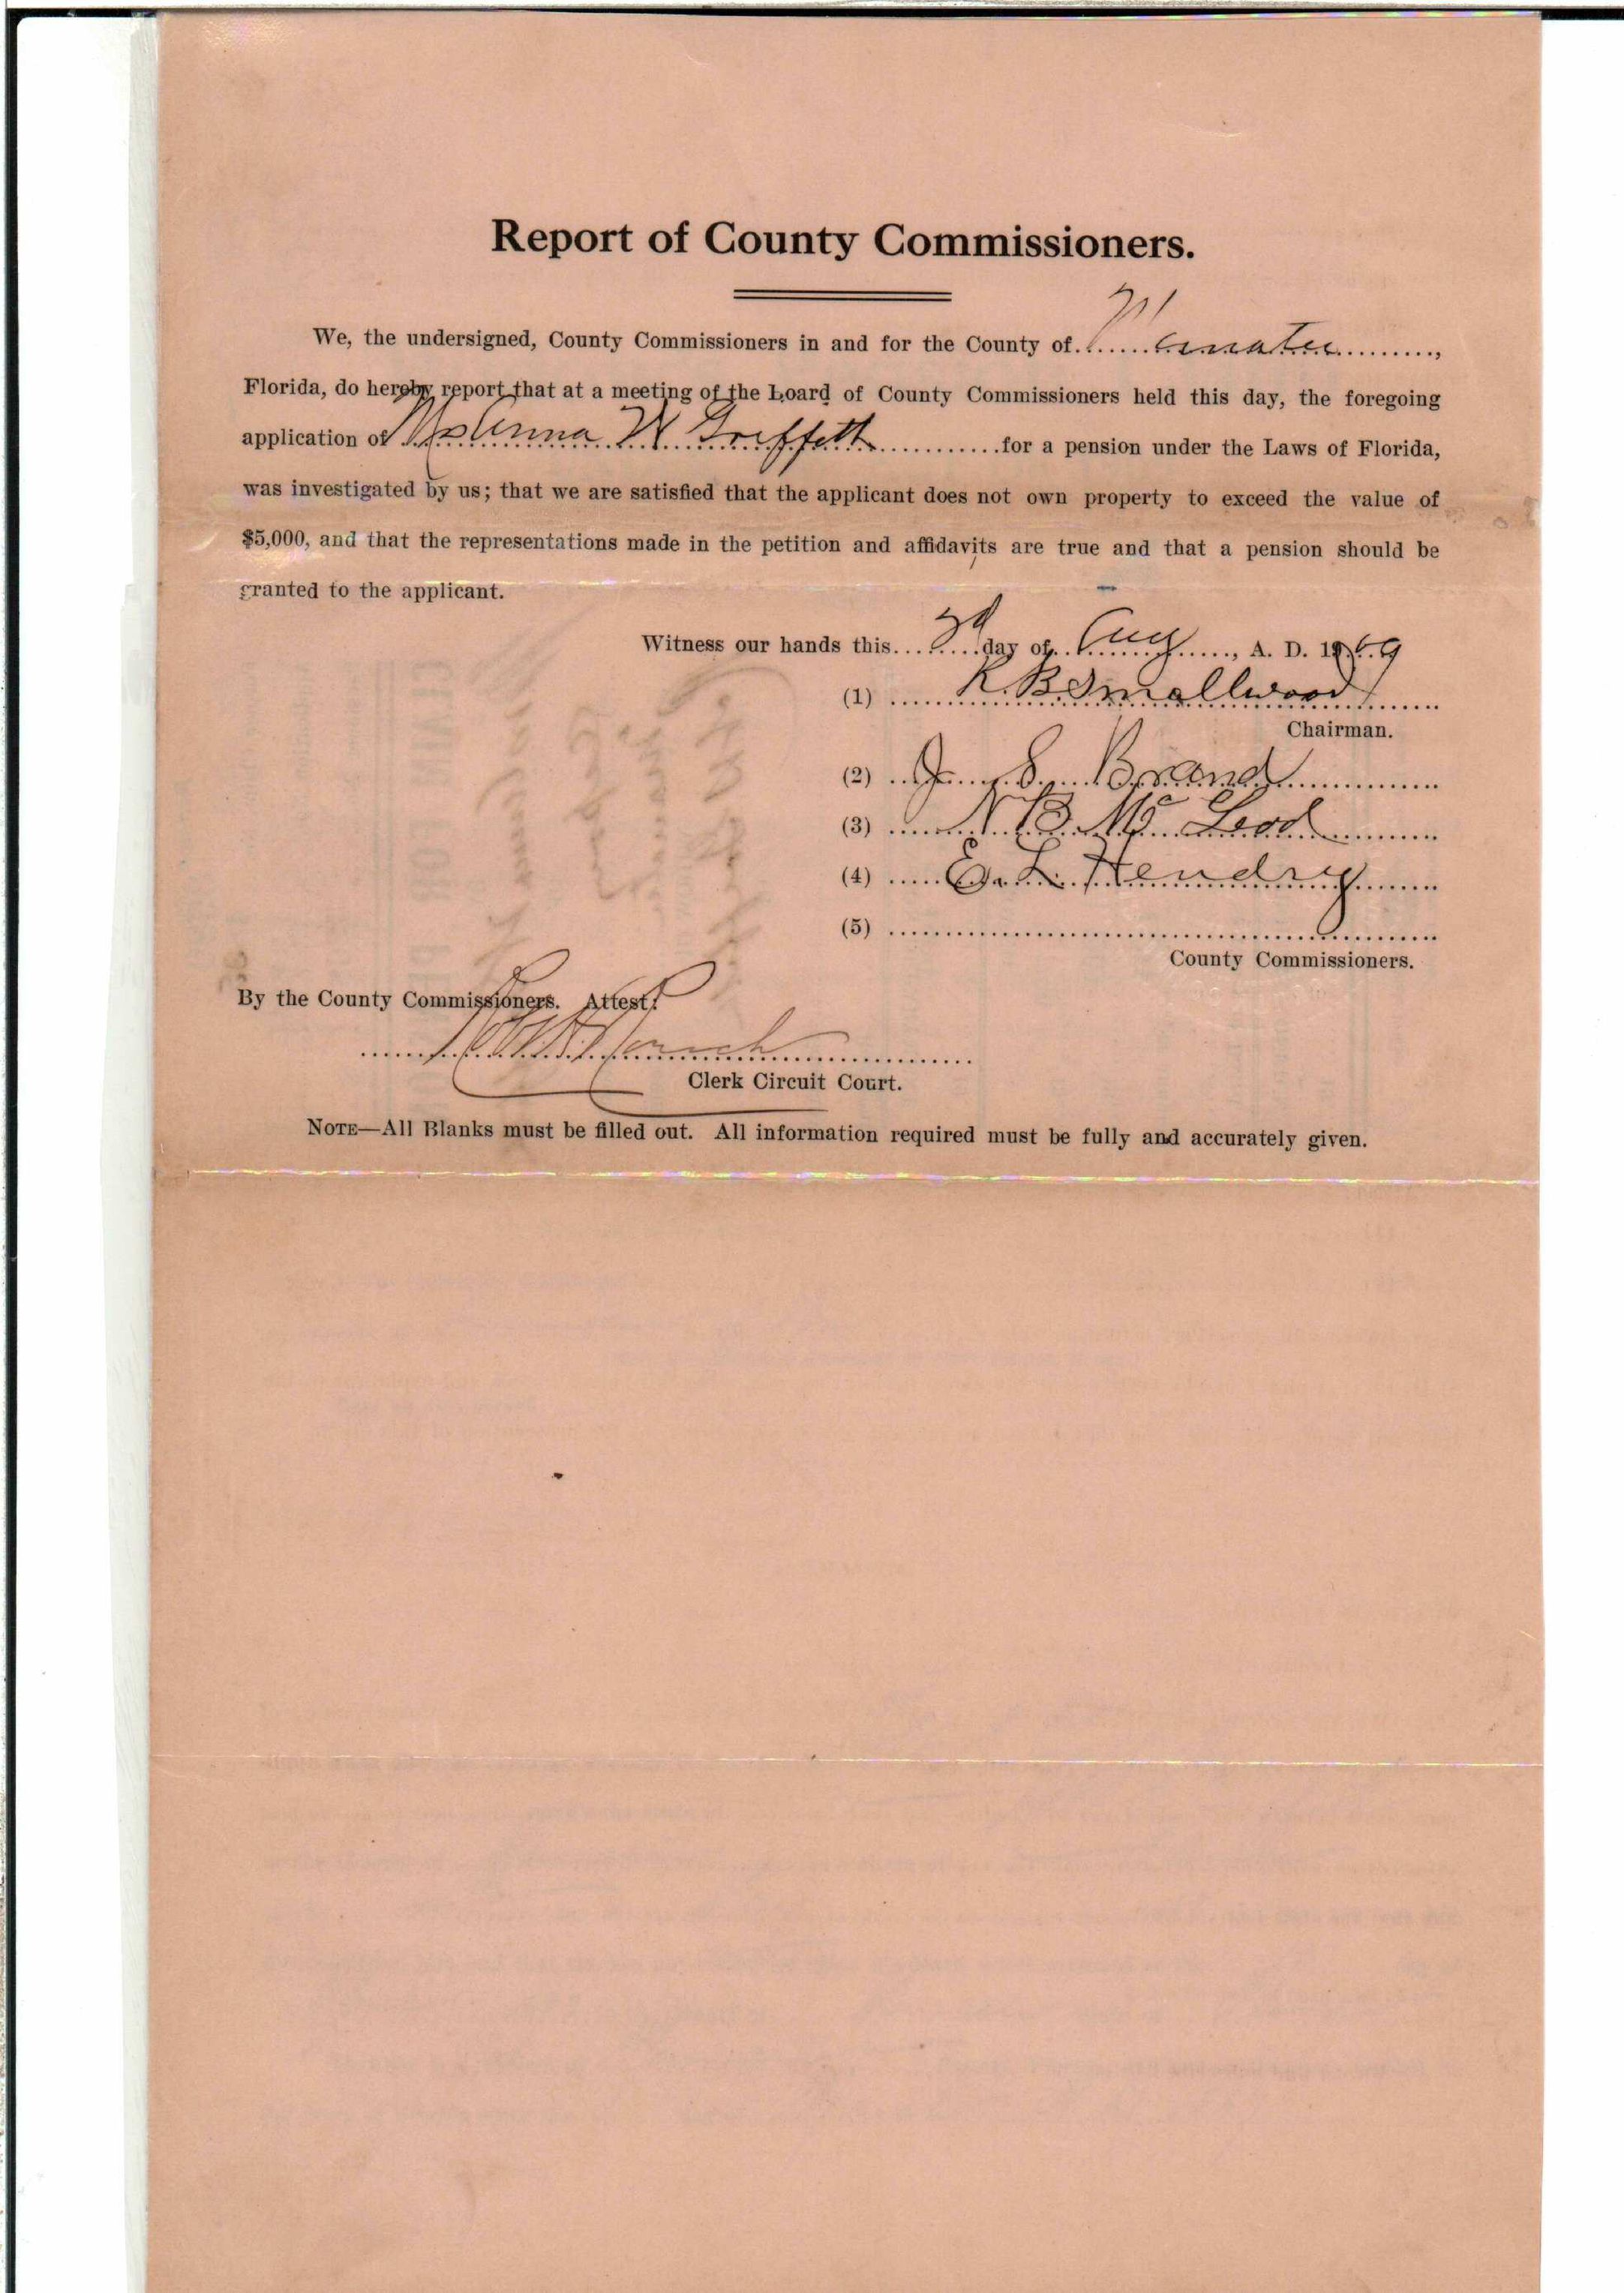 Report of County Commissioners.
We, the undersigned, County Commissioners in and for the County of Manatee,
Florida, do hereby report that at a meeting of the Board of County Commissioners held this day, the foregoing
application of Mrs Anna W Griffett for a pension under the Laws of Florida,
was investigated by us; that we are satisfied that the applicant does not own property to exceed the value of
$5,000, and that the representations made in the petition and affidavits are true and that a pension should be
granted to the applicant.
Witness our hands this 3d day of Aug, A. D. 19
(1) R. B. Smallwood
Chairman.
(2) J. S. Brand
(3) N. B. Mc Leod
(4) E. L. Hendry
(5)
County Commissioners.
By the County Commissioners. Attest:
Clerk Circuit Court.
NOTE—All Blanks must be filled out. All information required must be fully and accurately given.